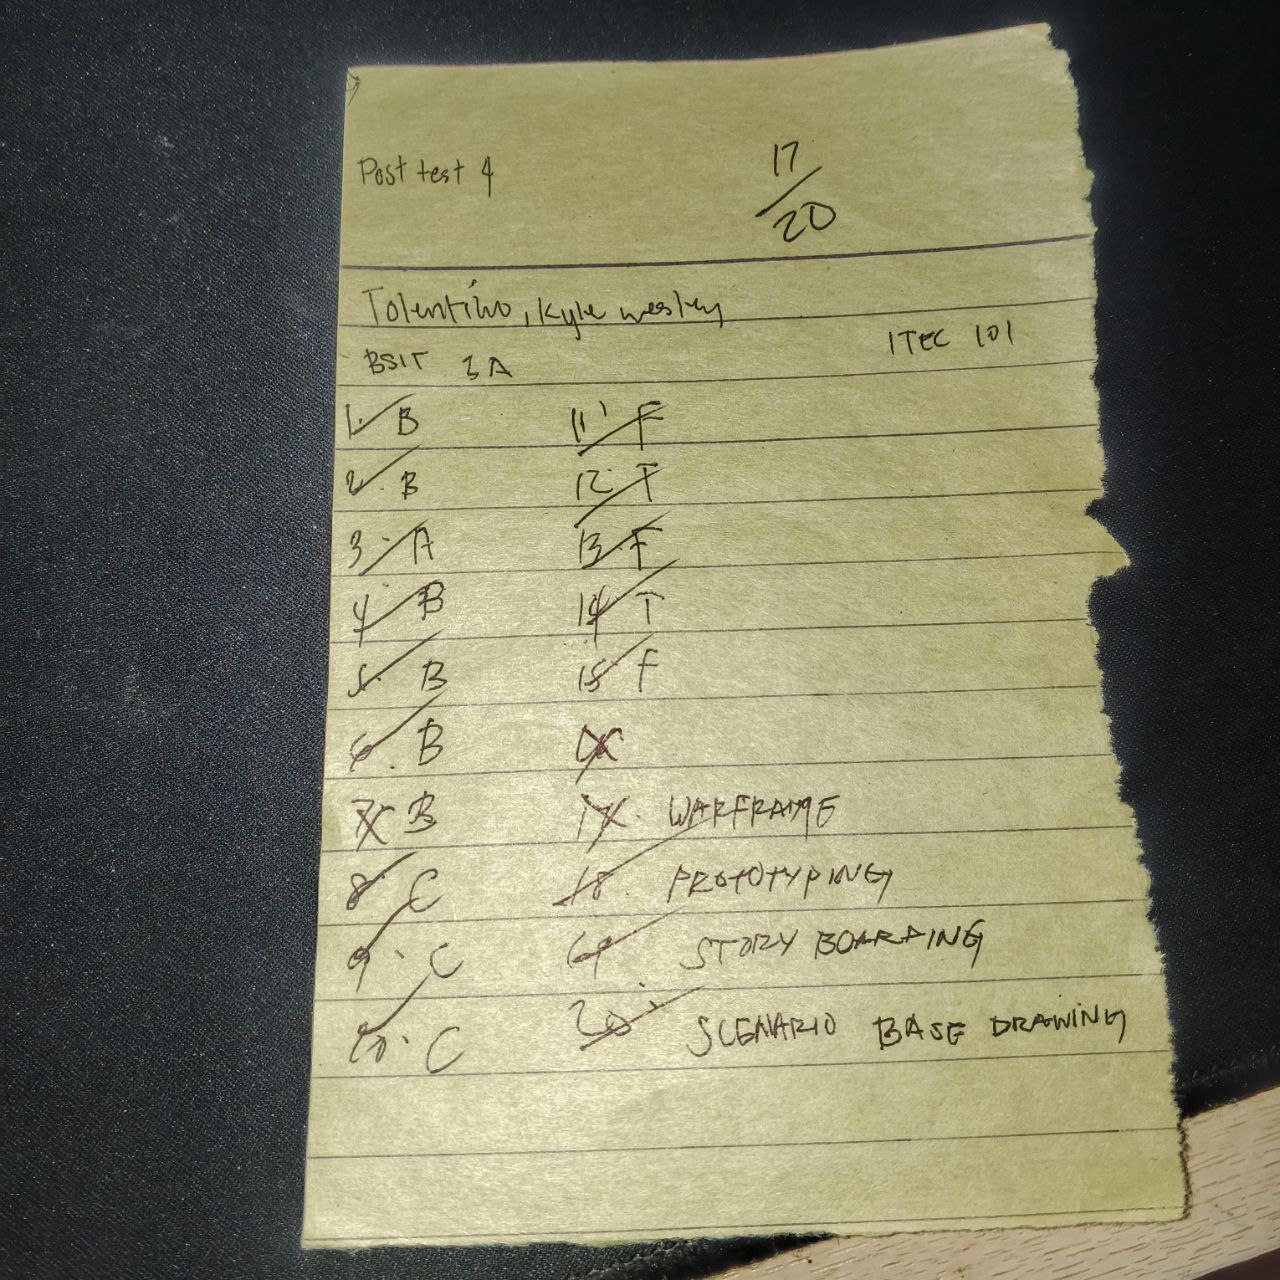 Post test 4
17/20
Tolentino, Kyle Wesley
BSIT 3A
ITEC 101
1. B
2. B
3. A
4. B
5. B
6. B
7. B
8. C
9. C
10. C
11. F
12. T
13. F
14. T
15. F
16.
17. WARFRAME
18. PROTOTYPING
19. STORY BOARDING
20. SCENARIO BASE DRAWING